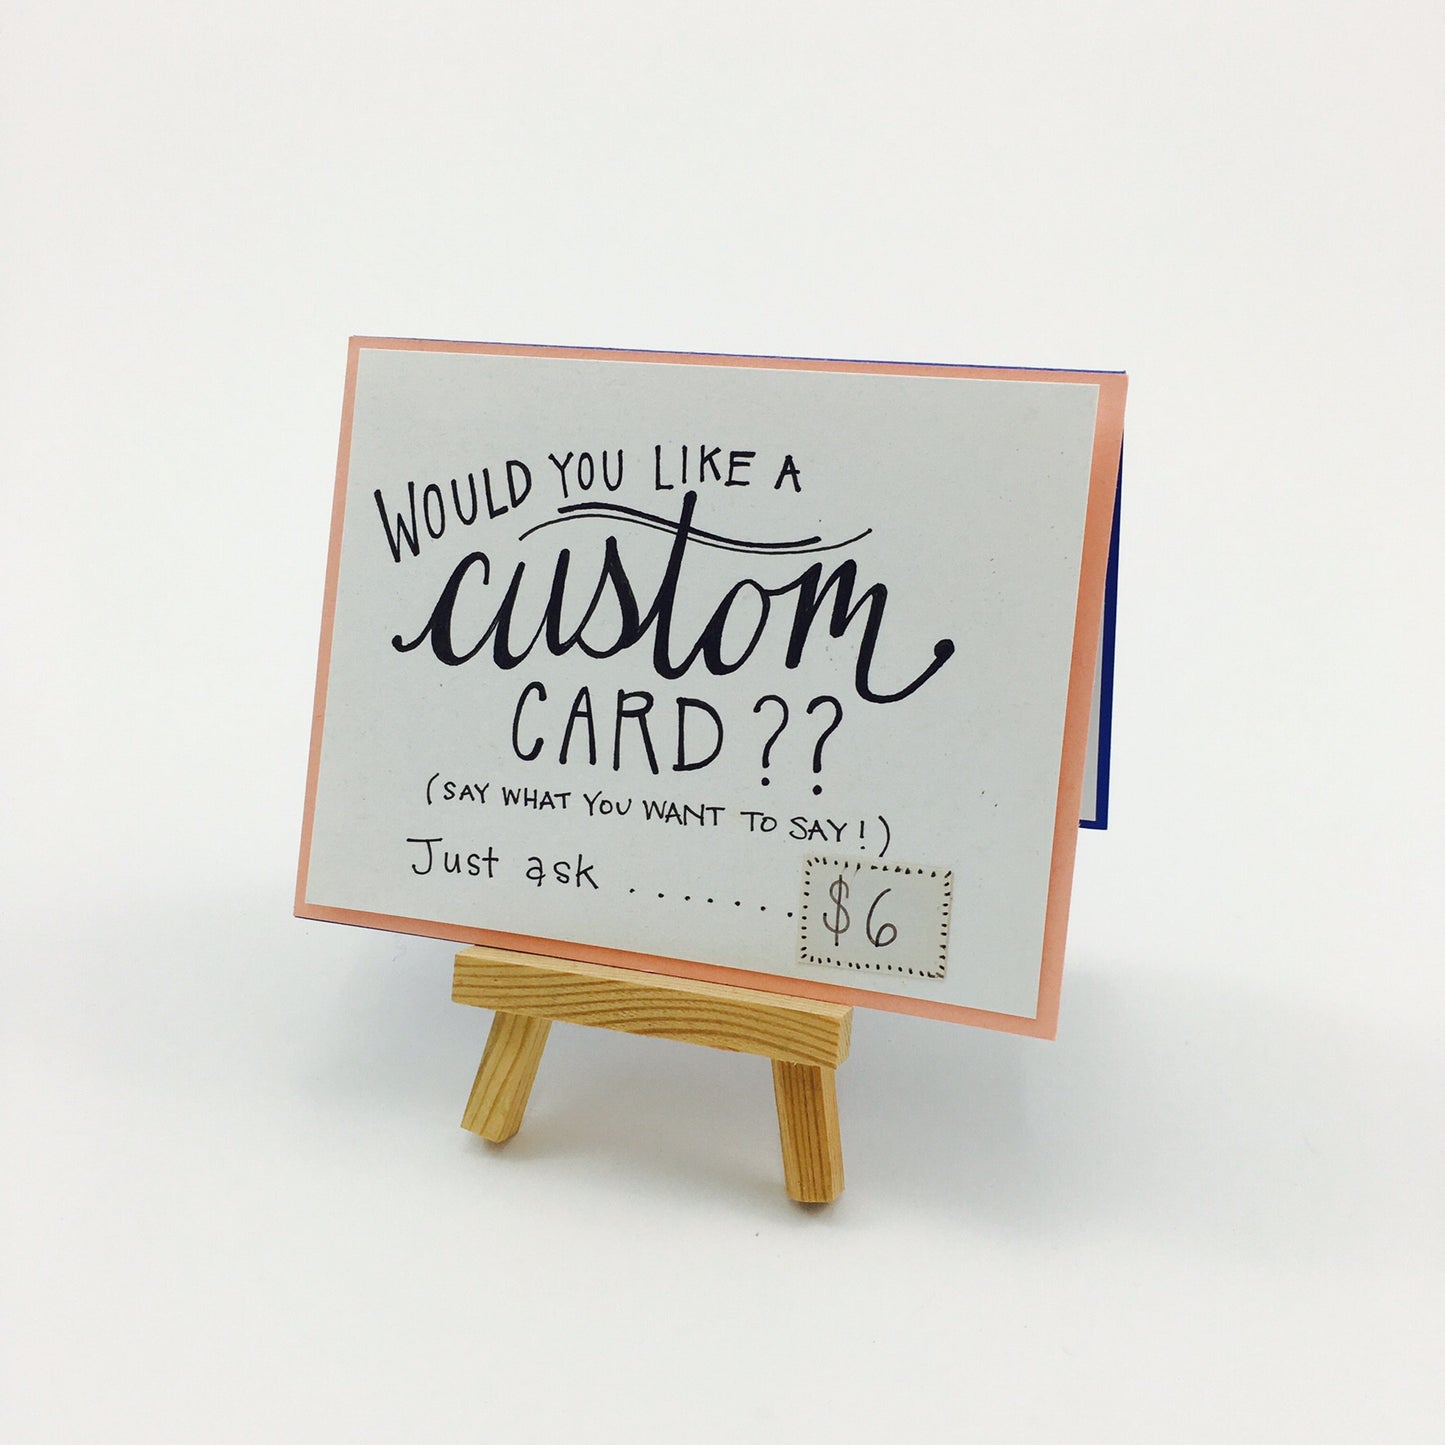 WOULD YOU LIKE A
custom
CARD??
(SAY WHAT YOU WANT TO SAY!)
Just ask ....... $6